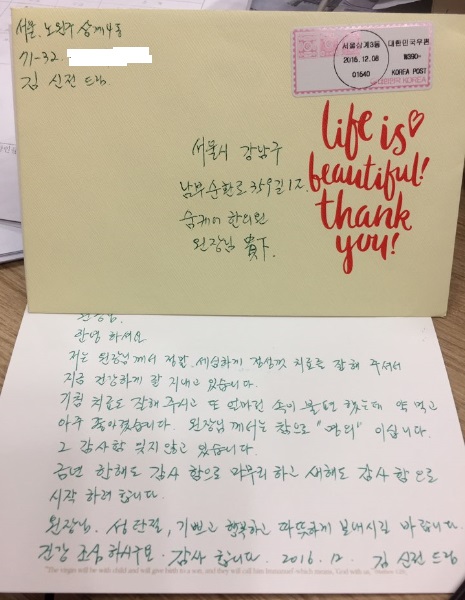 서울. 노원구 상계4동
71-32.
김 신전 드림
서울상계3동 대한민국우편
2016.12.08 ₩390-
01640 KOREA POST
life is
beautiful!
thank
you!
서울시 강남구
남부순환로 359길 12.
숨케어 한의원
원장님 貴下.
원장님.
안녕 하세요
저는 원장님께서 정말, 세심하게 정성껏 치료를 잘해 주셔서
지금 건강하게 잘 지내고 있습니다.
기침 치료도 잘해 주시고 또 언마진 손이 불편 했는데 약 먹고
아주 좋아졌습니다. 원장님 께서는 참으로 "명의" 이십니다.
그 감사함 잊지않고 있습니다.
금년 한해도 감사 함으로 마무리 하고 새해도 감사 함 으로
시작 하려 합니다.
원장님. 성탄절, 기쁘고 행복하고 따뜻하게 보내시길 바랍니다.
건강 조심 하시구요. 감사 합니다. 2016. 12. 김 신전 드림
"The virgin will be with child and will give birth to a son, and they will call him Immanuel which means, 'God with us.'